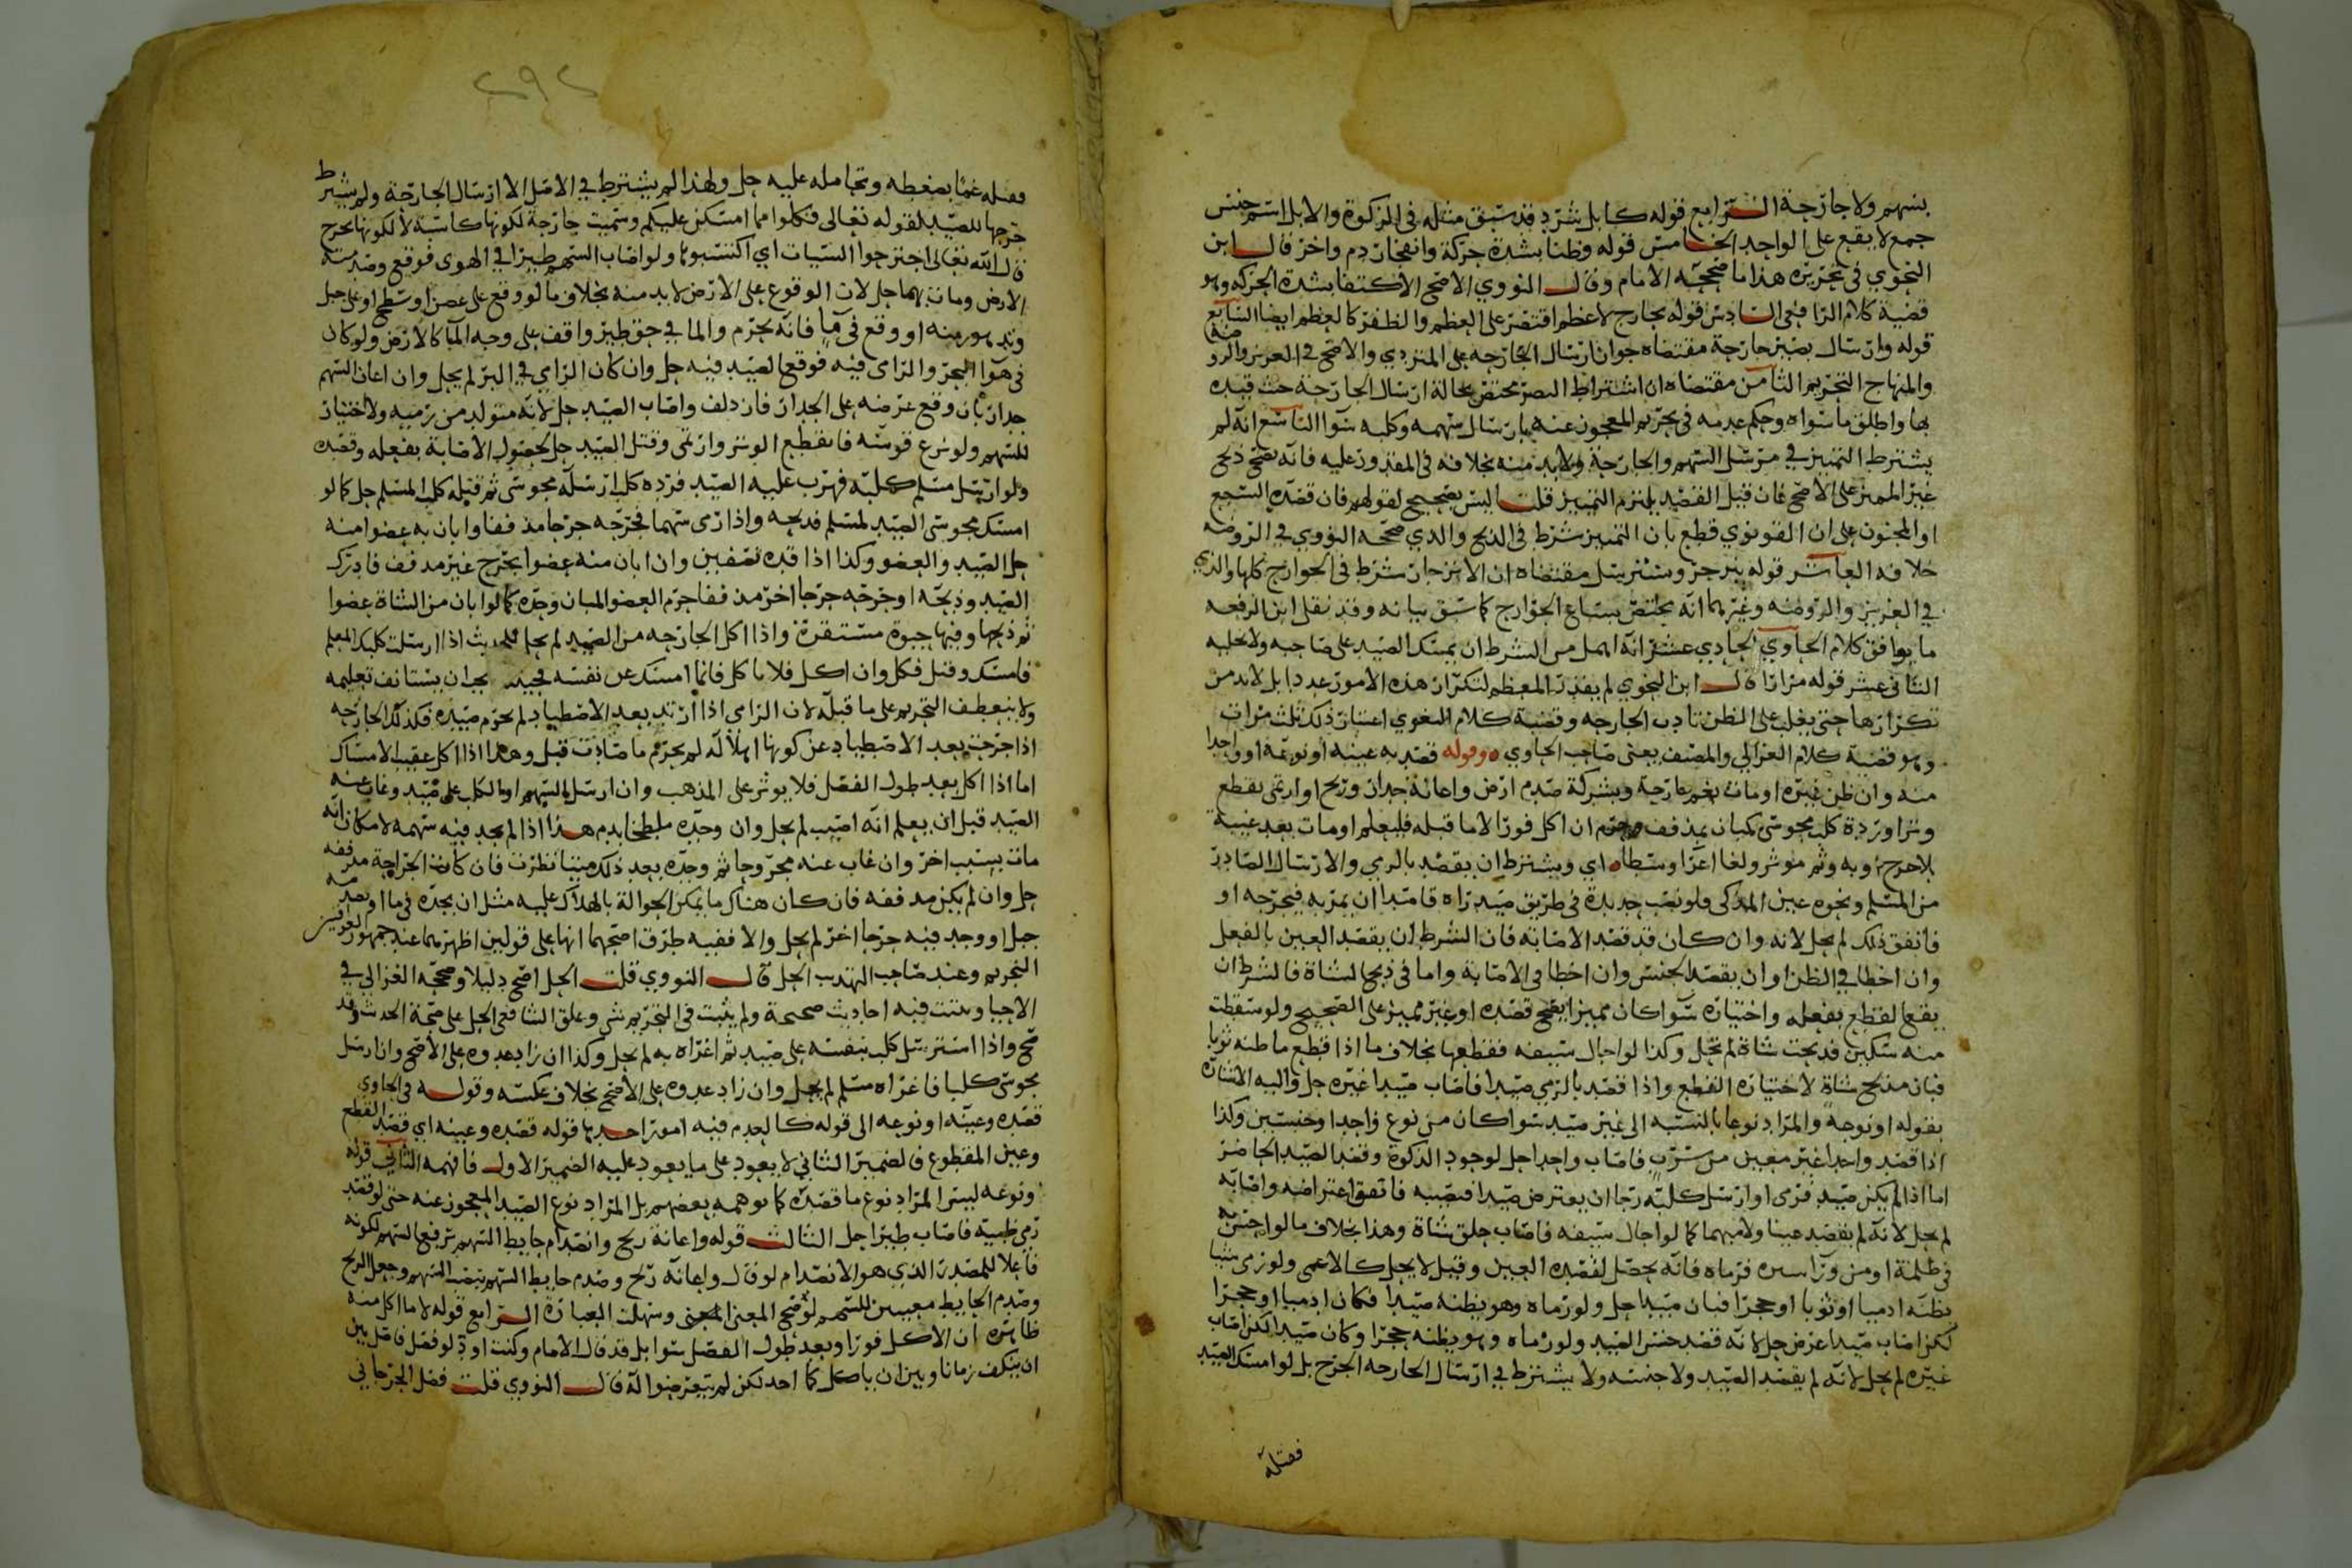 بسهم ولا جارحة الرابع قوله كابل شرد قد سبق مثله في الزكوة والابل اسم جنس
جمع لا يقع على الواحد الخامس قوله وظنا بشدة حركة وانفجار دم واخر قال ابن
النحوي في تحريره هذا ما صححه الامام وقال النووي الاصح الاكتفا بشدة الحركة وهو
قضية كلام الرافعي السادس قوله بجارح لا عظم اقتصر على العظم والظفر كالعظم ايضا السابع
قوله وارسال بصير جارحة مقتضاه جواز ارسال الجارحه على المتردي والاصح في العزيز والروضة
والمنهاج التحريم الثامن مقتضاه ان اشتراط البصر مختص بحالة ارسال الجارحة حيث قيده
بها واطلق ما سواه وحكم عدمه في تحريم المعجوز عنه بارسال سهمه وكلبه سوا التاسع انه لم
يشترط التمييز في مرسل السهم والجارحة ولابد منه بخلافه في المقدور عليه فانه يصح ذبح
غير المميز على الاصح فان قيل القصد يلتزم التمييز قلت ليس بصحيح لقولهم فان قصده السبع
او المجنون على ان القونوي قطع بان التمييز شرط في الذبح والذي صححه النووي في الروضه
خلافه العاشر قوله ينزجر ويسترسل مقتضاه ان الانزجار شرط في الجوارح كلها والذي
في العزيز والروضه وغيرهما انه يختص بسباع الجوارح كما سبق بيانه وقد نقل ابن الرفعه
ما يوافق كلام الحاوي الحادي عشر انه اهمل من الشرط ان يمسك الصيد على صاحبه ولا يخليه
الثاني عشر قوله مرارا قال ابن النحوي لم يقدر المعظم لتكرار هذه الامور عددا بل لابد من
تكرارها حتى يغلب على الظن تادب الجارحه وقضية كلام البغوي اعتبار ذلك ثلث مرات
وهو قضية كلام الغزالي والمصنف يعني صاحب الحاوي ه وقوله قصد به عينه او نوعه او واحدا
منه وان ظن غيره او مات بغم جارحة وبشركة صدم ارض واعانة جدار وريح او ارتمى بقطع
وتر او ردة كلب مجوسي كمبان بمذفف وحرم ان اكل فورا لا ما قبله فليعلم او مات بعد غيبة
بلا جرح او به وثم موثر ولغا اغرا وسطا ه اي ويشترط ان يقصد بالرمي والارسال الصادر
من المسلم ونحوه عين المذكى فلو نصب حديدة في طريق صيد راه قاصدا ان يمر به فيجرحه او
فاتفق ذلك لم يحل لانه وان كان قد قصد الاصابة فان الشرط ان يقصد العين بالفعل
وان اخطا في الظن او ان يقصد الجنس وان اخطا في الاصابة واما في ذبح الشاة فالشرط ان
يقع القطع بفعله واختياره سوا كان مميزا يصح قصده او غير مميز على الصحيح ولو سقطت
منه سكين فذبحت شاة لم تحل وكذا لو اجال سيفه فقطعها بخلاف ما اذا قطع ما ظنه ثوبا
فبان مذبح شاة لاختياره القطع واذا قصد بالرمي صيدا فاصاب صيدا غيره حل واليه الاشارة
بقوله او نوعه والمراد نوعا بالنسبه الى غير صيد سوا كان من نوع واحد او جنسين وكذا
اذا قصد واحدا غير معين من سرب فاصاب واحدا حل لوجود الذكوة وقصد الصيد الحاضر
اما اذا لم يكن صيد فرمى او ارسل كلبه رجا ان يعترض صيدا فيصيبه فاتفق اعتراضه واصابه
لم يحل لانه لم يقصد عينا ولا مبهما كما لو اجال سيفه فاصاب حلق شاة وهذا بخلاف ما لو احس به
في ظلمة او من ورا ستره فرماه فانه يحصل لقصده العين وقيل لا يحل كالاعمى ولو رمى شيا
يظنه ادميا او ثوبا او حجرا فبان صيدا حل ولو رماه وهو يظنه صيدا فكان ادميا او حجرا
لكن اصاب صيدا عرض حل لانه قصد جنس الصيد ولو رماه وهو يظنه حجرا وكان صيدا لكن اصاب
غيره لم يحل لانه لم يقصد الصيد ولا جنسه ولا يشترط في ارسال الجارحه الجرح بل لو امسك الصيد
فقتله
٢٩٢
فقتله غما بضغطه وتحامله عليه حل ولهذا لم يشترط في الاصل الا ارسال الجارحة ولم يشترط
جرحها للصيد لقوله تعالى فكلوا مما امسكن عليكم وسميت جارحة لكونها كاسبة لا لكونها تجرح
قال الله تعالى اجترحوا السيات اي اكتسبوها ولو اصاب السهم طيرا في الهوى فوقع وصدمته
الارض ومات بهما حل لان الوقوع على الارض لابد منه بخلاف ما لو وقع على غصن او سطح او على جبل
وتدهور منه او وقع في ما فانه يحرم والما في حق طير واقف على وجه الما كالارض ولو كان
في هوا البحر والرامي فيه فوقع الصيد فيه حل وان كان الرامي في البر لم يحل وان اعان السهم
جدار بان وقع عرضه على الجدار فازدلف واصاب الصيد حل لانه متولد من رميه ولا اختيار
للسهم ولو نزع قوسه فانقطع الوتر وارتمى وقتل الصيد حل لحصول الاصابة بفعله وقصده
ولو ارسل مسلم كلبه فهرب عليه الصيد فرده كلب ارسله مجوسي ثم قتله كلب المسلم حل كما لو
امسك مجوسي الصيد لمسلم فذبحه واذا رمى سهما فجرحه جرحا مذففا وابان به عضوا منه
حل الصيد والعضو وكذا اذا قده نصفين وان ابان منه عضوا بجرح غير مدفف فادرك
الصيد وذبحه او جرحه جرحا اخر مذففا حرم العضو المبان وحده كما لو ابان من الشاة عضوا
ثم ذبحها وفيها حيوة مستقرة واذا اكل الجارحه من الصيد لم يحل للحديث اذا ارسلت كلبك المعلم
فامسك وقتل فكل وان اكل فلا تاكل فانما امسك عن نفسه فحينئذ يجب ان يستانف تعليمه
ولا ينعطف التحريم على ما قبله لان الرامي اذا ارتد بعد الاصطياد لم يحرم صيده فكذلك الجارحه
اذا خرجت بعد الاصطياد عن كونها اهلا له لم يحرم ما صادت قبل وهذا اذا اكل عقيب الامساك
اما اذا اكل بعد طول الفصل فلا يوثر على المذهب وان ارسل السهم او الكلب على صيد وغاب عنه
الصيد قبل ان يعلم انه اصيب لم يحل وان وجده ملطخا بدم هذا اذا لم يجد فيه سهمه لامكان انه
مات بسبب اخر وان غاب عنه مجروحا ثم وجده بعد ذلك ميتا نظرت فان كانت الجراحة مدففه
حل وان لم يكن مدففه فان كان هناك ما يمكن الحوالة بالهلاك عليه مثل ان يجده في ما او
جبل او وجد فيه جرحا اخر لم يحل والا ففيه طرق اصحهما انها على قولين اظهرهما عند جمهور العراقيين
التحريم وعند صاحب التهذيب الحل قال النووي قلت الحل اصح دليلا وصححه الغزالي في
الاحيا وثبتت فيه احاديث صحيحة ولم يثبت في التحريم شي وعلق الشافعي الحل على صحة الحديث وقد
صح واذا استرسل كلب بنفسه على صيد ثم اغراه به لم يحل وكذا ان زاد عدوه على الاصح وان ارسل
مجوسي كلبا فاغراه مسلم لم يحل وان زاد عدوه على الاصح بخلاف عكسه وقوله في الحاوي
قصده وعينه او نوعه الى قوله كالعدم فيه امور احدها قوله قصده وعينه اي قصد القطع
وعين المقطوع فالضمير الثاني لا يعود على ما يعود عليه الضمير الاول فافهمه الثاني قوله
ونوعه ليس المراد نوع ما قصده كما توهمه بعضهم بل المراد نوع الصيد المعجوز عنه حتى لو قصد
رمي ظبية فاصاب طيرا حل الثالث قوله واعانة ريح وانصدام حايط السهم برفع السهم لكونه
فاعلا للمصدر الذي هو الانصدام لو قال واعانه ريح وصدم حايط السهم بنصب السهم وجعل الريح
وصدم الحايط معينين للسهم لوضح المعنى وسهلت العبارة الرابع قوله لا ما اكل منه
ظاهره ان الاكل فورا وبعد طول الفصل سوا بل قد قال الامام وكنت اود لو فصل فاصل بين
ان ينكف زمانا وبين ان ياكل كما اخذ لكن لم يتعرضوا له قال النووي قلت فصل الجرجاني